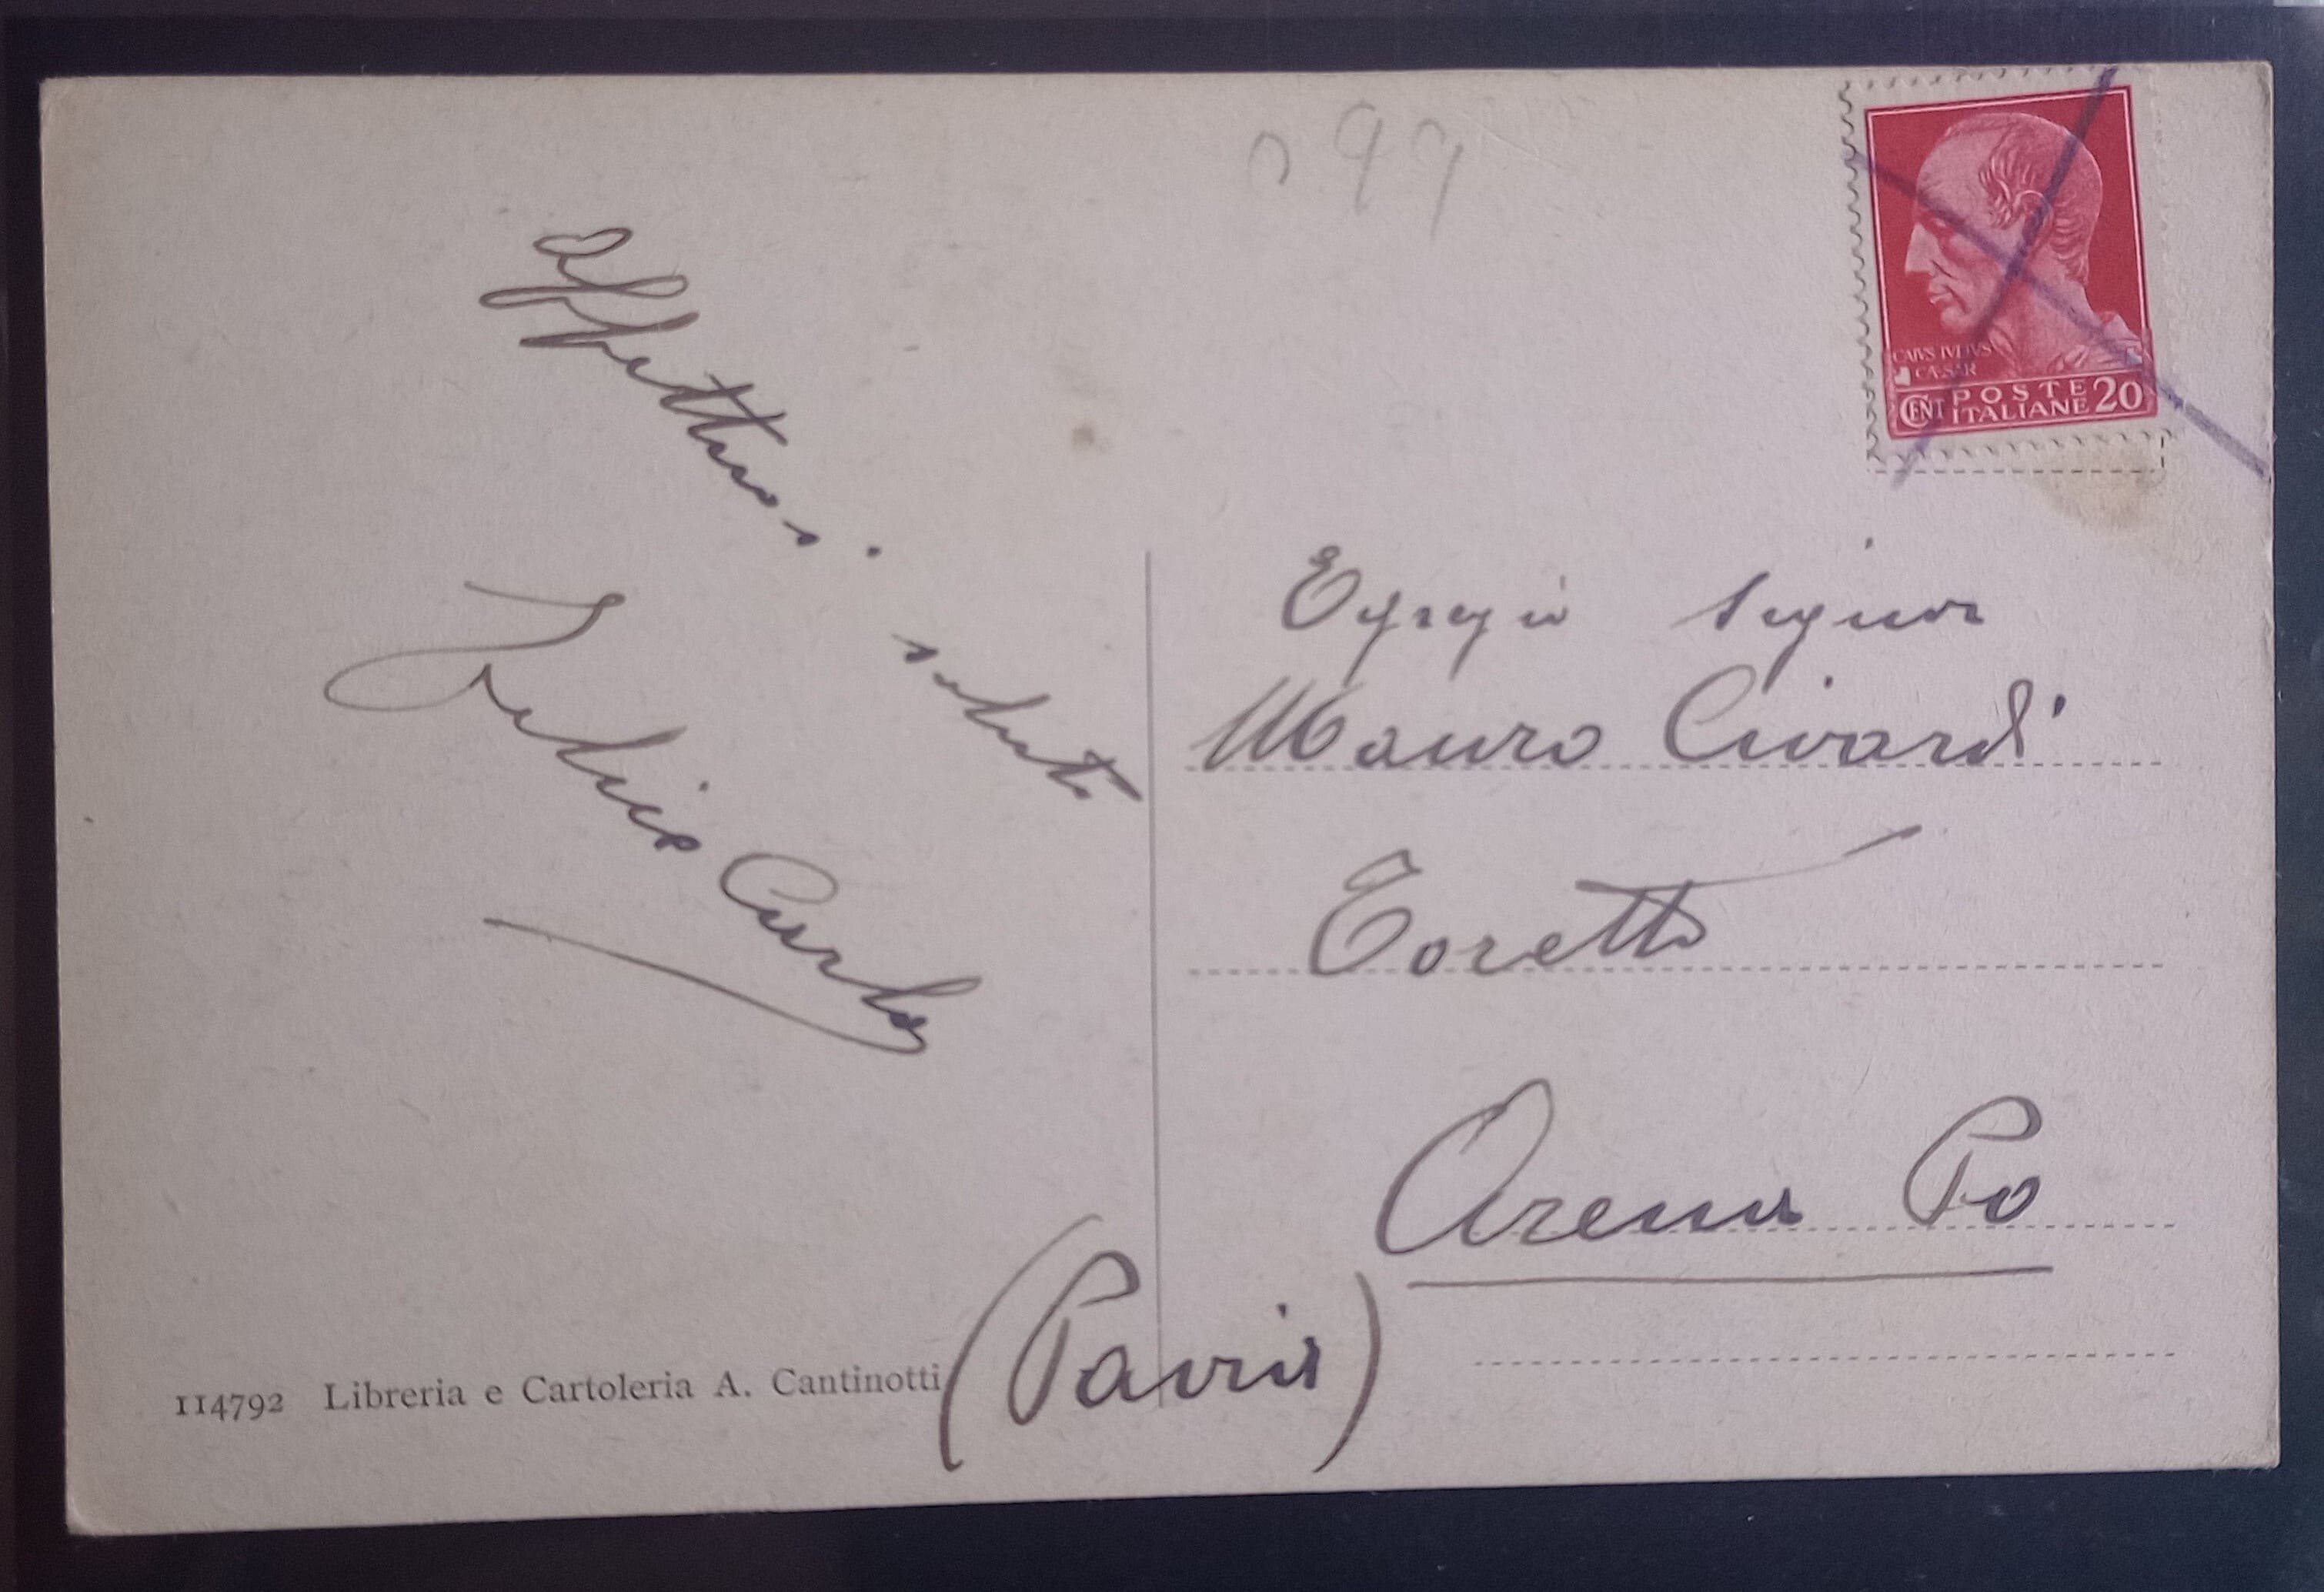 099
CAIVS IVLIVS
CAESAR
CENT POSTE ITALIANE 20
Affettuosi saluti
Carlo
Egregio Signor
Mauro Civardi
Toretto
Arena Po
(Pavia)
114792 Libreria e Cartoleria A. Cantinotti